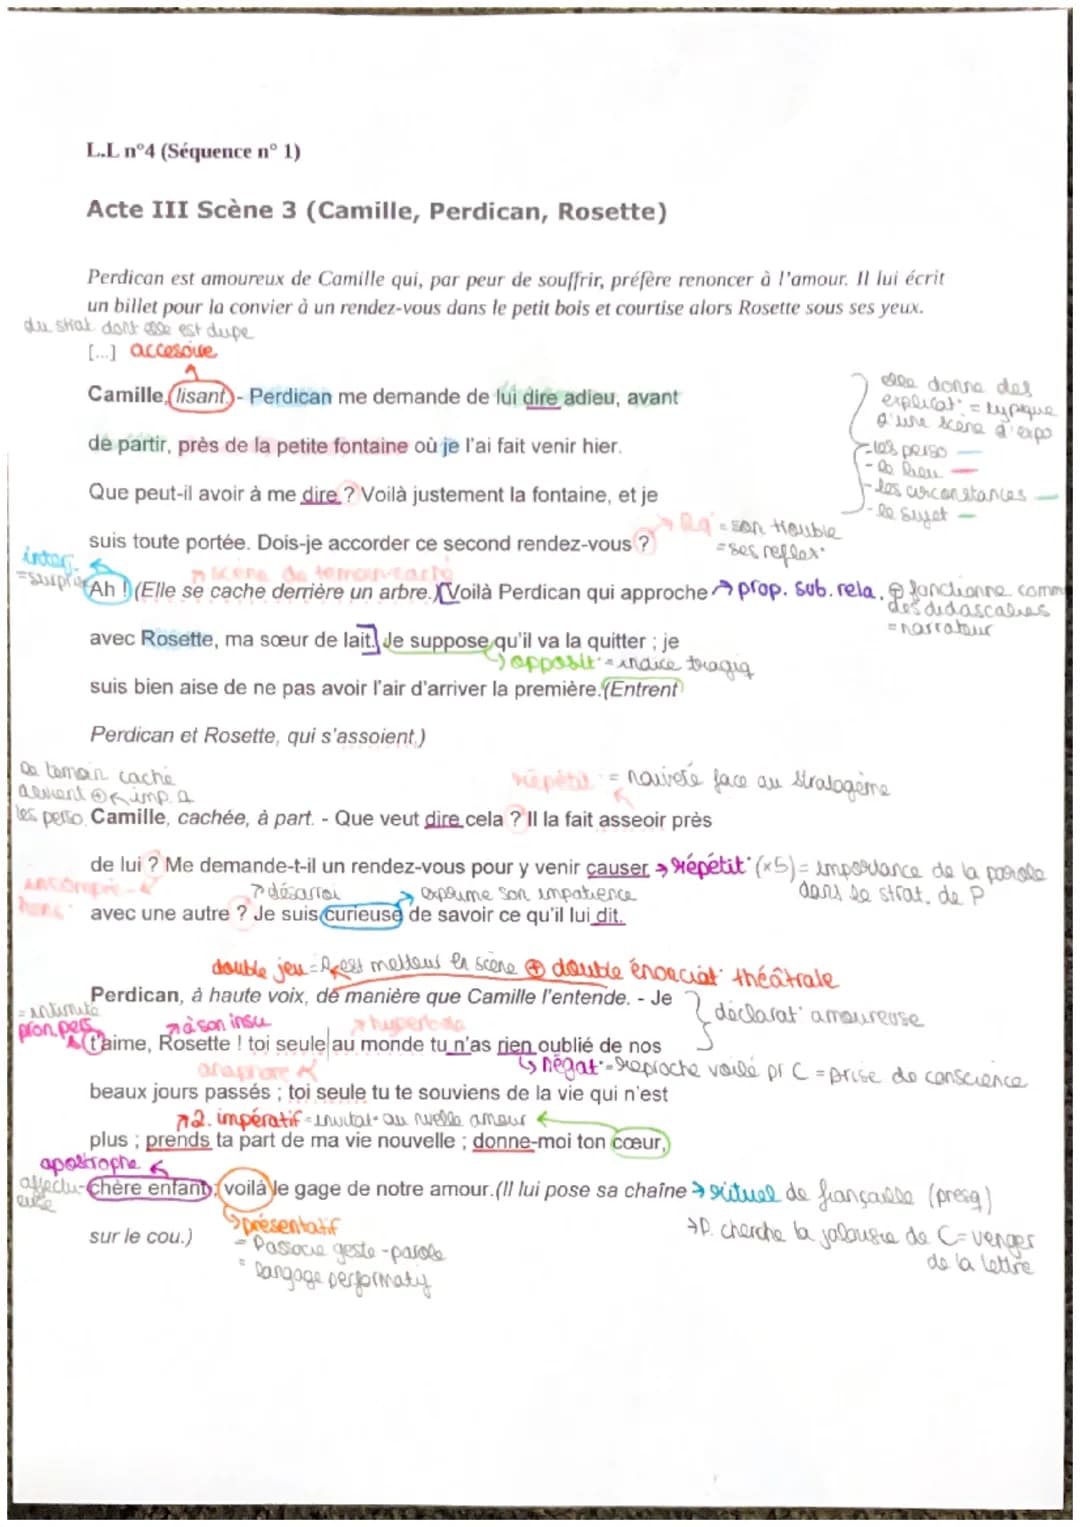 L.L n°4 (Séquence n° 1)
Acte III Scène 3 (Camille, Perdican, Rosette)
Perdican est amoureux de Camille qui, par peur de souffrir, préfère renoncer à l'amour. Il lui écrit
un billet pour la convier à un rendez-vous dans le petit bois et courtise alors Rosette sous ses yeux.
du strat dont elle est dupe
[...] accesoire
Camille, lisant. - Perdican me demande de lui dire adieu, avant
elle donne des
explicat° = typique
d'une scène d'expo
de partir, près de la petite fontaine où je l'ai fait venir hier.
- les perso
- le lieu
- les circonstances
- le sujet
Que peut-il avoir à me dire ? Voilà justement la fontaine, et je
suis toute portée. Dois-je accorder ce second rendez-vous ?
= son trouble
= ses reflex°
interj.
= surprise
scène de témoin caché
Ah ! (Elle se cache derrière un arbre.) Voilà Perdican qui approche → prop. sub. rela. fonctionne comme
des didascalies
= narrateur
avec Rosette, ma sœur de lait. Je suppose qu'il va la quitter ; je
opposit° = indice tragiq
suis bien aise de ne pas avoir l'air d'arriver la première. (Entrent
Perdican et Rosette, qui s'assoient.)
le temoin caché
devient ⊕ imp. q
les perso
répétit° = naïveté face au stratagème
Camille, cachée, à part. - Que veut dire cela ? Il la fait asseoir près
de lui ? Me demande-t-il un rendez-vous pour y venir causer → répétit° (x5) = importance de la parole
dans le strat. de P
incompré-
hens°
désarroi
exprime son impatience
avec une autre ? Je suis curieuse de savoir ce qu'il lui dit.
double jeu = P est metteur en scène ⊕ double énonciat° théâtrale
Perdican, à haute voix, de manière que Camille l'entende. - Je
déclarat° amoureuse
= intimité
pron. pers
à son insu
hyperbole
t'aime, Rosette ! toi seule au monde tu n'as rien oublié de nos
anaphore
négat° = reproche voilé pr C = prise de conscience
beaux jours passés ; toi seule tu te souviens de la vie qui n'est
2. impératif = invitat° au nvelle amour
plus ; prends ta part de ma vie nouvelle ; donne-moi ton cœur,
apostrophe
affectu-
euse
chère enfant ; voilà le gage de notre amour. (Il lui pose sa chaîne → rituel de fiançaille (presq)
sur le cou.)
présentatif
= l'associe geste - parole
= langage performatif
→ P. cherche la jalousie de C = venger
de la lettre